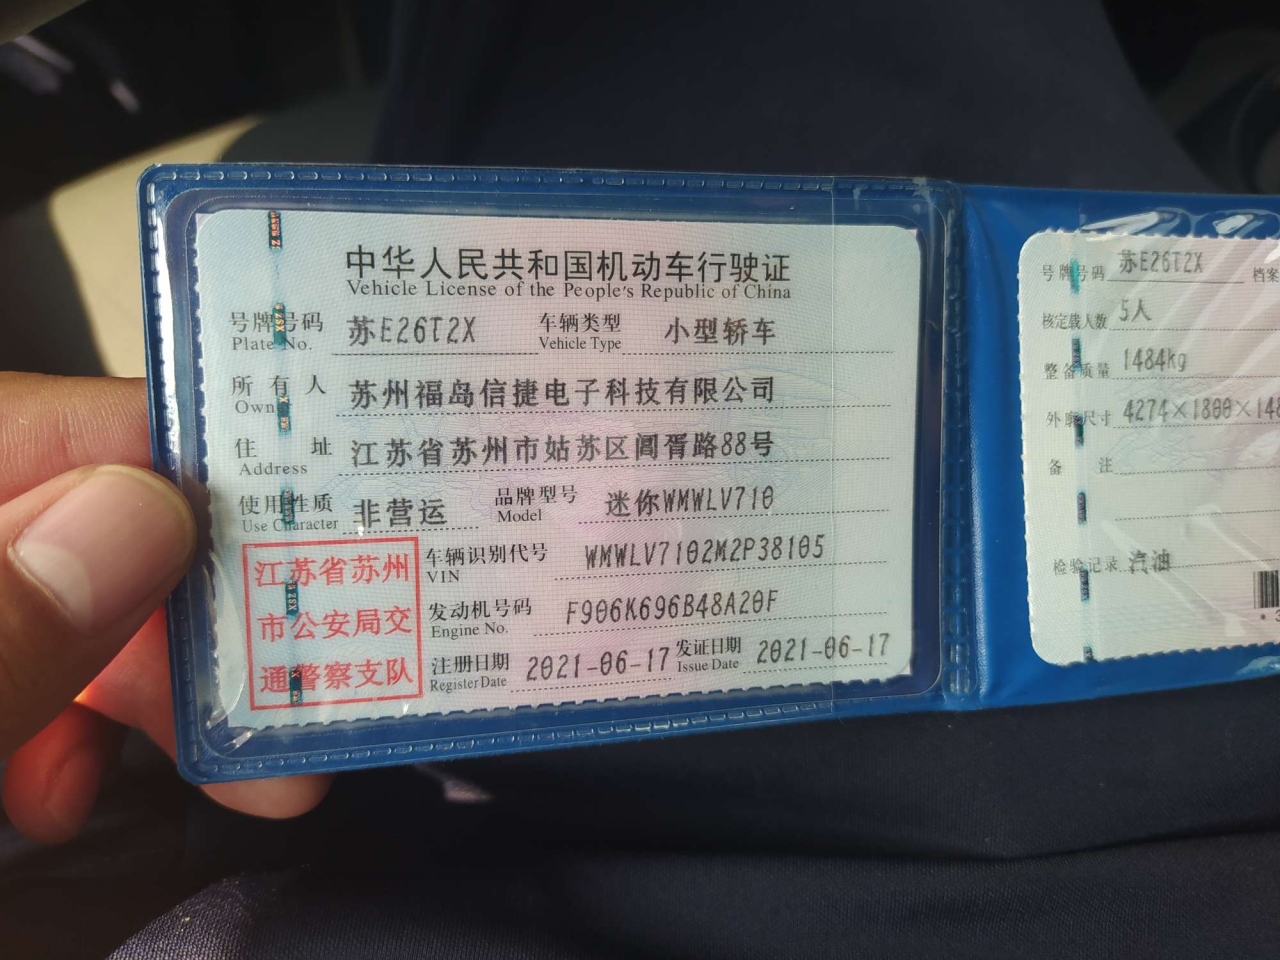 中华人民共和国机动车行驶证
Vehicle License of the People's Republic of China
号牌号码 苏E26T2X 车辆类型 小型轿车
Plate No. Vehicle Type
所有人 苏州福岛信捷电子科技有限公司
Own
住址 江苏省苏州市姑苏区阊胥路88号
Address
使用性质 非营运 品牌型号 迷你WMWLV710
Use Character Model
江苏省苏州
市公安局交
通警察支队
车辆识别代号 WMWLV7102M2P38105
VIN
发动机号码 F906K696B48A20F
Engine No.
注册日期 2021-06-17 发证日期 2021-06-17
Register Date Issue Date
号牌号码 苏E26T2X 档案
核定载人数 5人
整备质量 1484kg
外廓尺寸 4274×1800×148
备注
检验记录 汽油